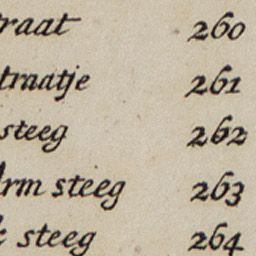 raat 260
traatje 261
steeg 262
Arm steeg 263
steeg 264